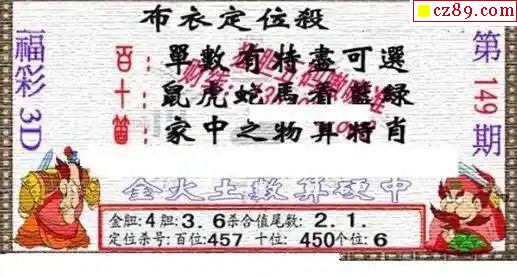 cz89.com
布衣定位殺
福彩3D
第149期
百：單數有特盡可選
十：鼠虎蛇馬看藍綠
箇：家中之物算特肖
金火土數算碼中
金胆:4胆:3.6杀合值尾数: 2.1.
定位杀号:百位:457 十位: 450个位:6